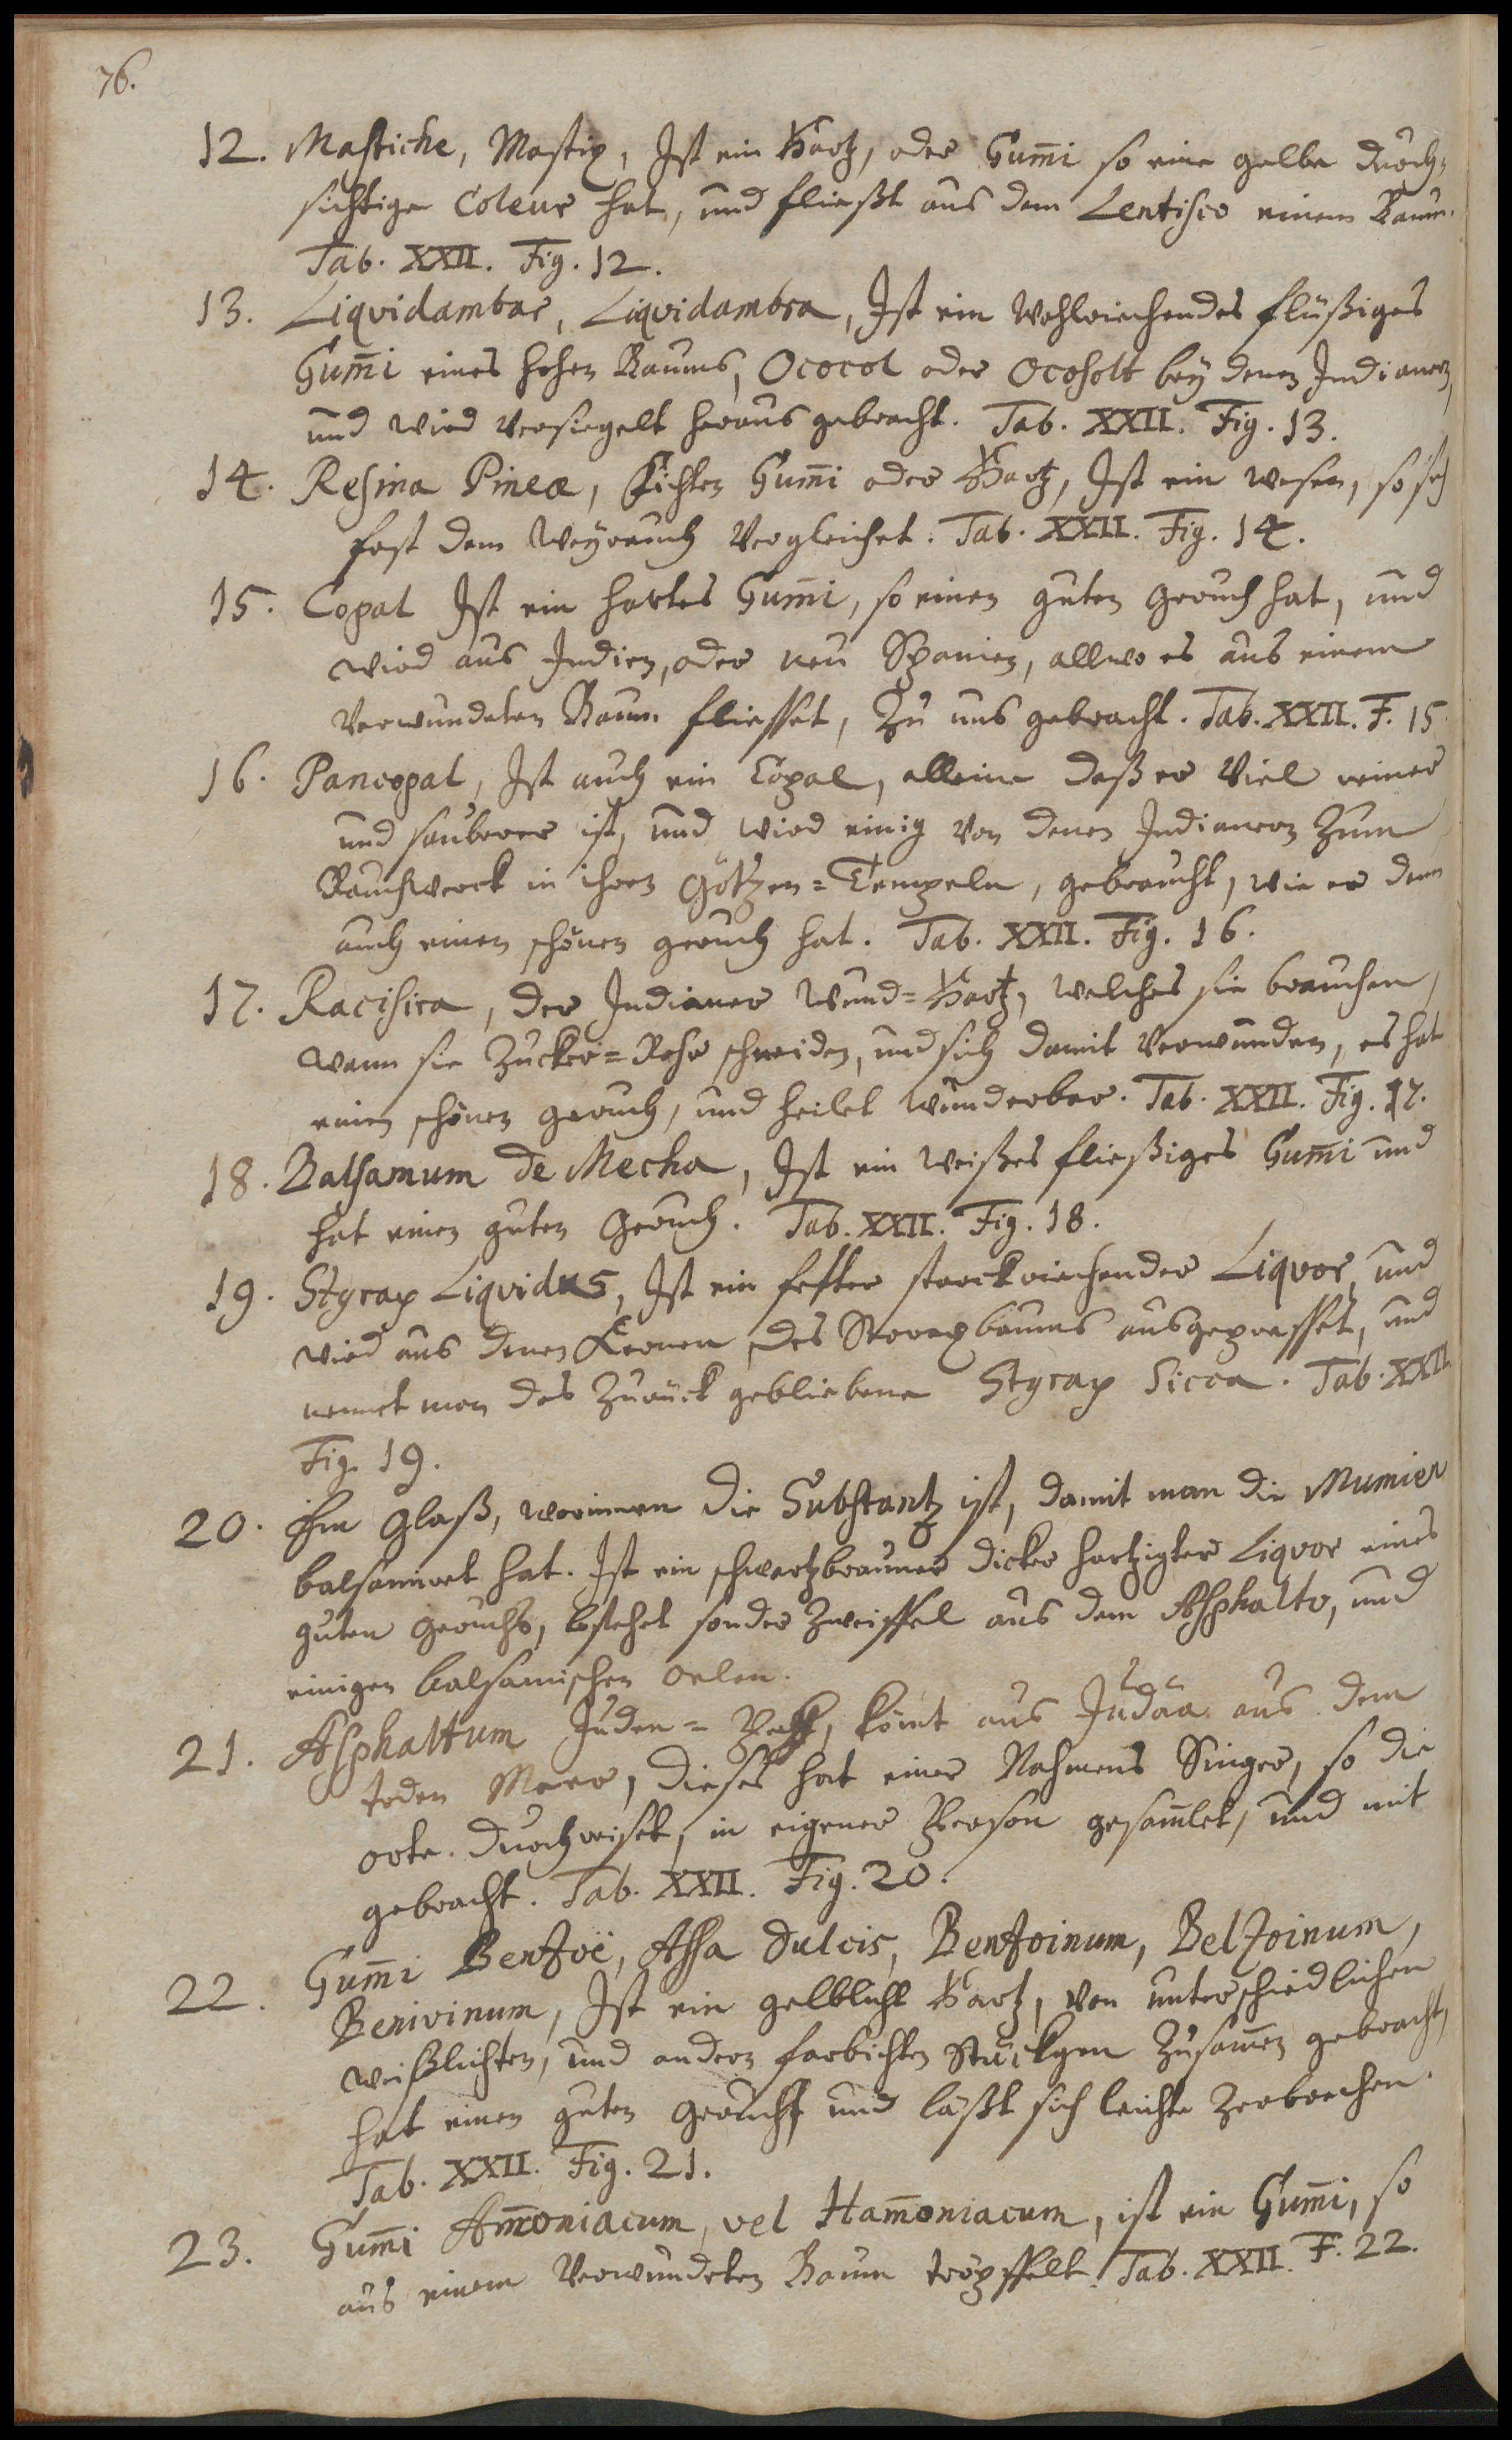 76.
12. Mastiche, Mastix, Ist ein Hartz, oder Gum̄i so eine gelbe durch-
sichtige Coleur hat, und fließt aus dem Lentisco einem Baum.
Tab. XXII. Fig. 12.
13. Liqvidambar, Liqvidambra, Ist ein Wohlriechendes flüßiges
Gum̄i eines hohen Baums, Ococol oder Ocosolt bey denen Indianern,
und wird Versiegelt heraus gebracht. Tab. XXII. Fig. 13.
14. Resina Pineæ, Fichten Gum̄i oder Hartz, Ist ein wesen, so sich
fast dem Weyrauch Vergleichet. Tab. XXII. Fig. 14.
15. Copal Ist ein hartes Gum̄i, so einen guten Geruch hat, und
wird aus Indien, oder neu Spanien, allwo es aus einem
Verwundeten Baum fliesset, Zu uns gebracht. Tab. XXII. F. 15.
16. Pancopal, Ist auch ein Copal, alleine daß er Viel reiner
und sauberer ist, und wird einig von denen Indianern Zum
Rauchwerck in ihren Götzen=Tempeln, gebraucht, wie er denn
auch einen schönen geruch hat. Tab. XXII. Fig. 16.
17. Racisira, der Indianer Wund=Hartz, welches sie brauchen,
wann sie Zucker=Rohr schneiden, und sich damit Verwunden, es hat
einen schönen geruch, und heilet wunderbar. Tab. XXII. Fig. 17.
18. Balsamum de Mecha, Ist ein Weißes fließiges Gum̄i und
hat einen guten Geruch. Tab. XXII. Fig. 18.
19. Styrax Liqvidus, Ist ein fetter starckriechender Liqvor, und
wird aus denen Kernen des Storaxbaums ausgepresset, und
nennet man das Zurück gebliebene Styrax Sicca. Tab. XXII
Fig. 19.
20. Ein Glaß, worinnen die Substantz ist, damit man die Mumien
balsamiret hat. Ist ein schwartzbrauner dicker hartzigter Liqvor eines
guten Geruchs, bestehet sonder Zweiffel aus dem Asphalto, und
einigen balsamischen Oelen.
21. Asphaltum Juden=Pech, kom̄t aus Judäa aus dem
todten Meer, dieses hat einer Nahmens Singer, so die
orte durchreiset, in eigener Person gesam̄let, und mit
gebracht. Tab. XXII. Fig. 20.
22. Gum̄i Benzoë, Assa dulcis, Benzoinum, Belzoinum,
Benivinum, Ist ein gelblicht Hartz, von unterschiedlichen
weißlichten, und andern farbichten Stückgen Zusam̄en gebracht,
hat einen guten Geruch und läßt sich leichte Zerbrechen.
Tab. XXII. Fig. 21.
23. Gum̄i Am̄oniacum, vel Ham̄oniacum, ist ein Gum̄i, so
aus einem Verwundeten Baum tröpffelt. Tab. XXII. F. 22.